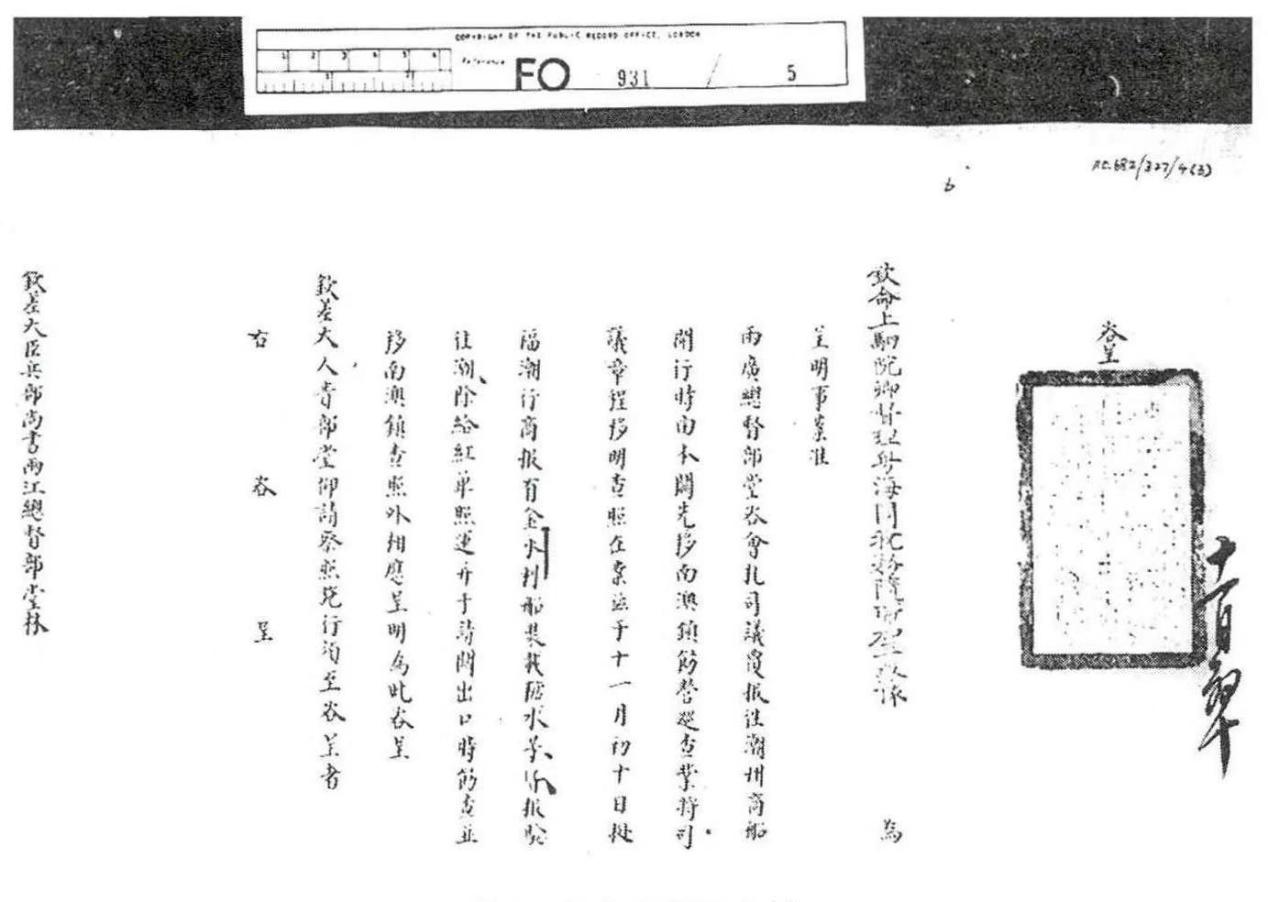 COPYRIGHT OF THE PUBLIC RECORD OFFICE, LONDON
1 2 3 4 5 6
Reference
FO 931 / 5
1 2
F.O.682/327/4(3)
b
咨呈
欽命上駟院卿督理粵海關稅務 為
呈明事案准
兩廣總督部堂咨會札司議覆報往潮州商船
開行時由本關先移南澳鎮飭營巡查業將司
議章程移明查照在案茲于十一月初十日據
福潮行商報有金永利船裝載糖水等 報驗
往潮除給紅單照運并于請關出口時飭查並
移南澳鎮查照外相應呈明為此咨呈
欽差大人貴部堂仰請察照施行須至咨呈者
右 咨 呈
欽差大臣兵部尚書兩江總督部堂林